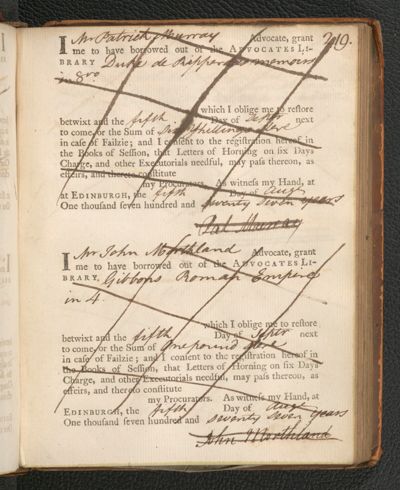 219.
I Mr Patrick Murray Advocate, grant
me to have borrowed out of the ADVOCATES LI-
BRARY Duke de Ripperda's memoirs
in 8vo
which I oblige me to restore
betwixt and the fifth Day of Septr next
to come, or the Sum of Six shillings ster
in case of Failzie; and I consent to the registration hereof in
the Books of Session, that Letters of Horning on six Days
Charge, and other Executorials needful, may pass thereon, as
effeirs, and thereto constitute
my Procurators. As witness my Hand, at
at EDINBURGH, the fifth Day of Augt
One thousand seven hundred and seventy seven years
Pat Murray
I Mr John Morthland Advocate, grant
me to have borrowed out of the ADVOCATES LI-
BRARY, Gibbons Roman Empire
in 4.
which I oblige me to restore
betwixt and the fifth Day of Septr next
to come, or the Sum of One pound ster
in case of Failzie; and I consent to the registration hereof in
the Books of Session, that Letters of Horning on six Days
Charge, and other Executorials needful, may pass thereon, as
effeirs, and thereto constitute
my Procurators. As witness my Hand, at
EDINBURGH, the fifth Day of Augt
One thousand seven hundred and seventy seven years
John Morthland